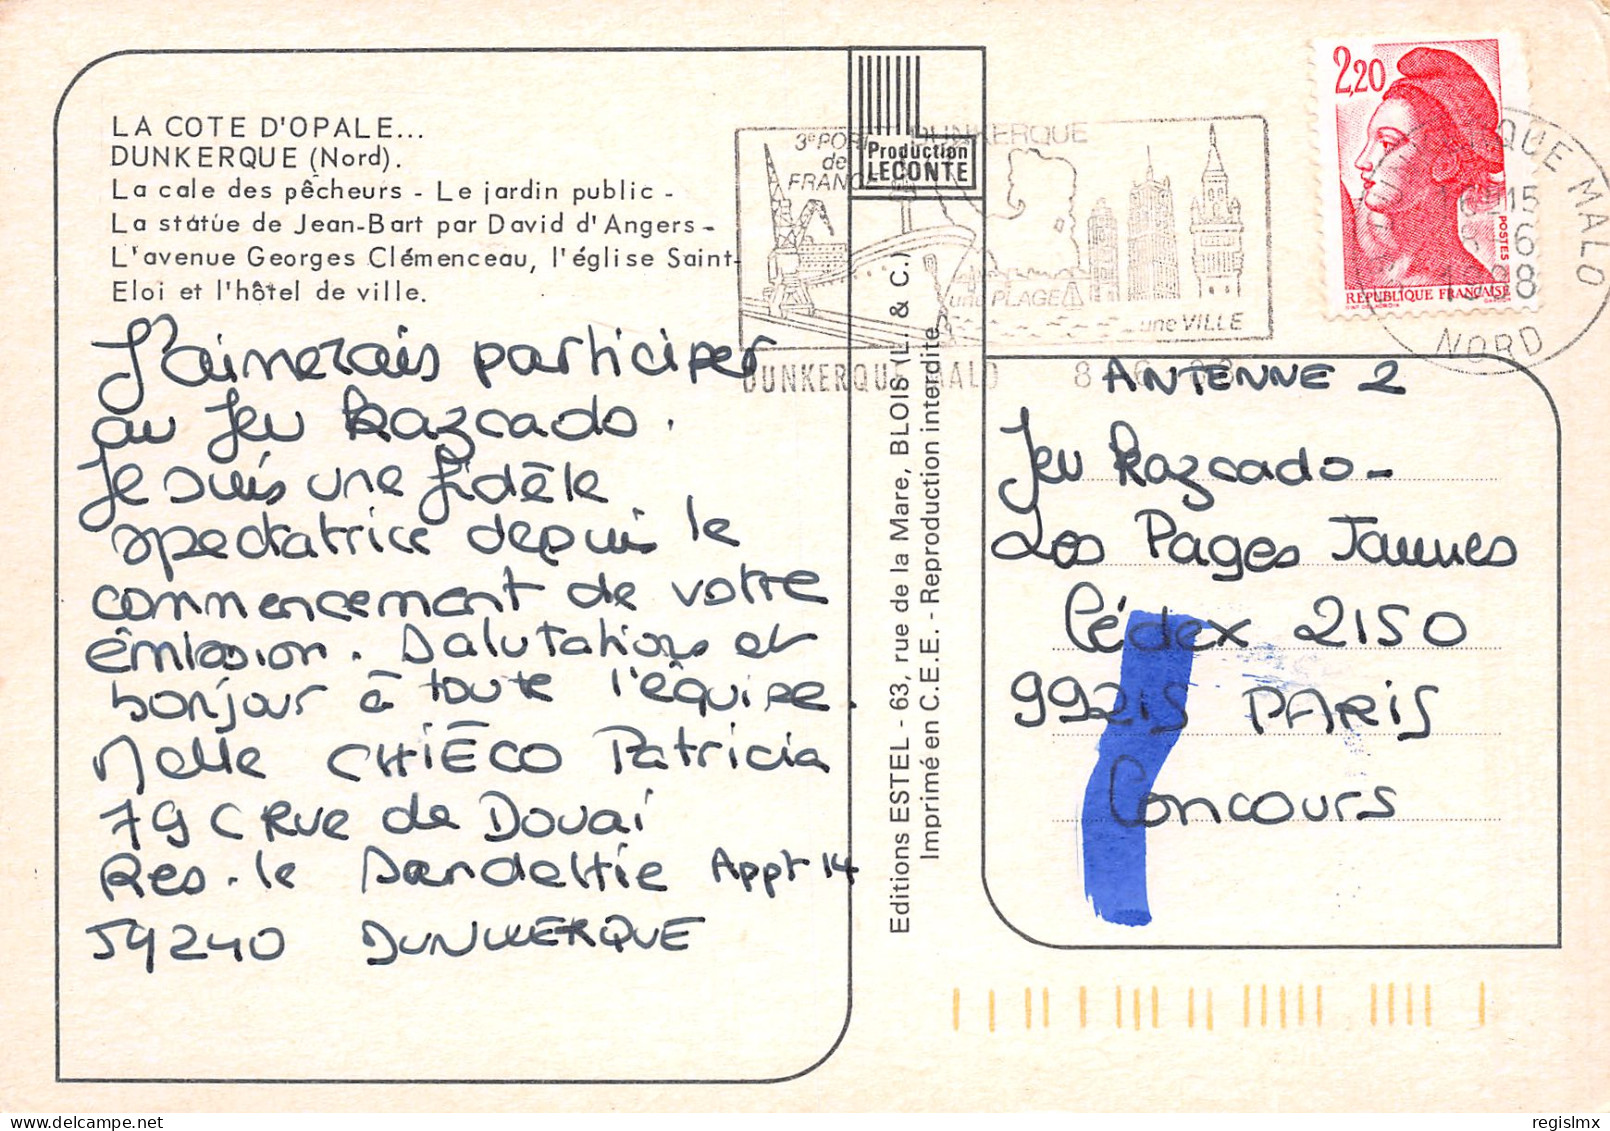 LA COTE D'OPALE...
DUNKERQUE (Nord).
La cale des pêcheurs - Le jardin public -
La statue de Jean-Bart par David d'Angers -
L'avenue Georges Clémenceau, l'église Saint-
Eloi et l'hôtel de ville.
J'aimerais participer
au Jeu Kazcado.
Je suis une fidèle
spectatrice depuis le
commencement de votre
émission. Salutations et
bonjour à toute l'équipe.
Melle CHIÉCO Patricia
79 C Rue de Douai
Res. le Dandeltie Appt 14
59240 DUNKERQUE
Production
LECONTE
Editions ESTEL - 63, rue de la Mare, BLOIS (L. & C.)
Imprimé en C.E.E. - Reproduction interdite
3e PORT
de
FRANCE
DUNKERQUE
une PLAGE
une VILLE
DUNKERQUE MALO 8 6
2,20
POSTES
RÉPUBLIQUE FRANÇAISE
RQUE MALO
15
6
1988
NORD
ANTENNE 2
Jeu Kazcado -
Les Pages Jaunes
Cédex 2150
99215 PARIS
Concours
regislmx